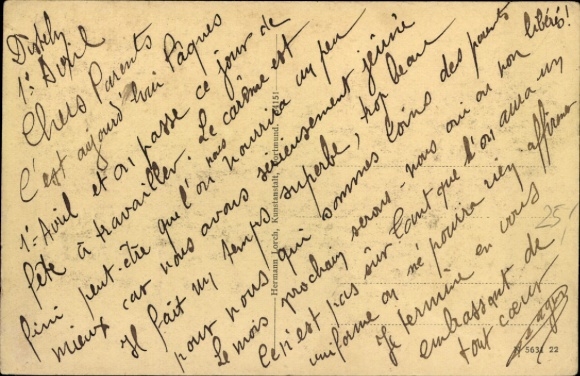 1er Avril
Chers Parents
C'est aujourd'hui Pâques
1er Avril et on passe ce jour de
fête à travailler. Le carême est
fini peut-être que l'on nous nourrira un peu
mieux car nous avons sérieusement jeûné
Il fait un temps superbe, trop beau
pour nous qui sommes loins des parents
Le mois prochain serons-nous oui ou non libérés!
Ce n'est pas sûr tant que l'on aura un
uniforme on ne pourra rien affirmer
Je termine en vous
embrassant de
tout cœur
Hermann Lorch, Kunstanstalt, Dortmund.
5631 22
25,-